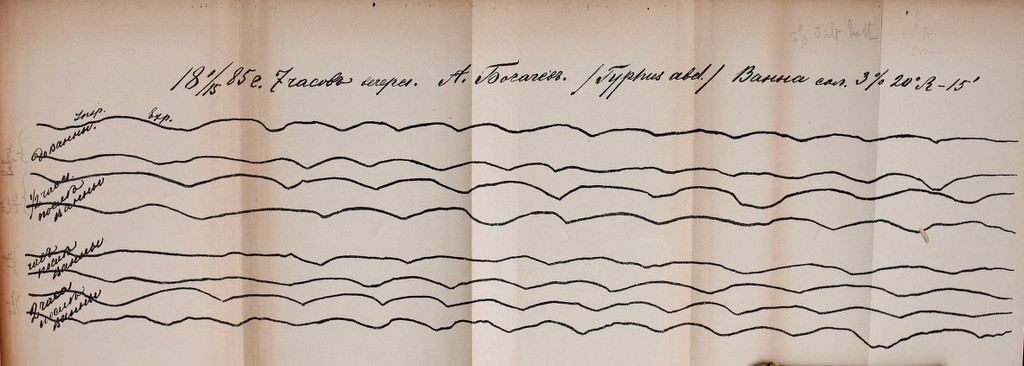 18 85 г. 7 часовъ вечера. А. Богачевъ. /Typhus abd./ Ванна сол. 3% 20°R - 15'
Insp. Exp.
До ванны.
1/2 часа
послѣ
ванны
часъ
послѣ
ванны
2 часа
послѣ
ванны